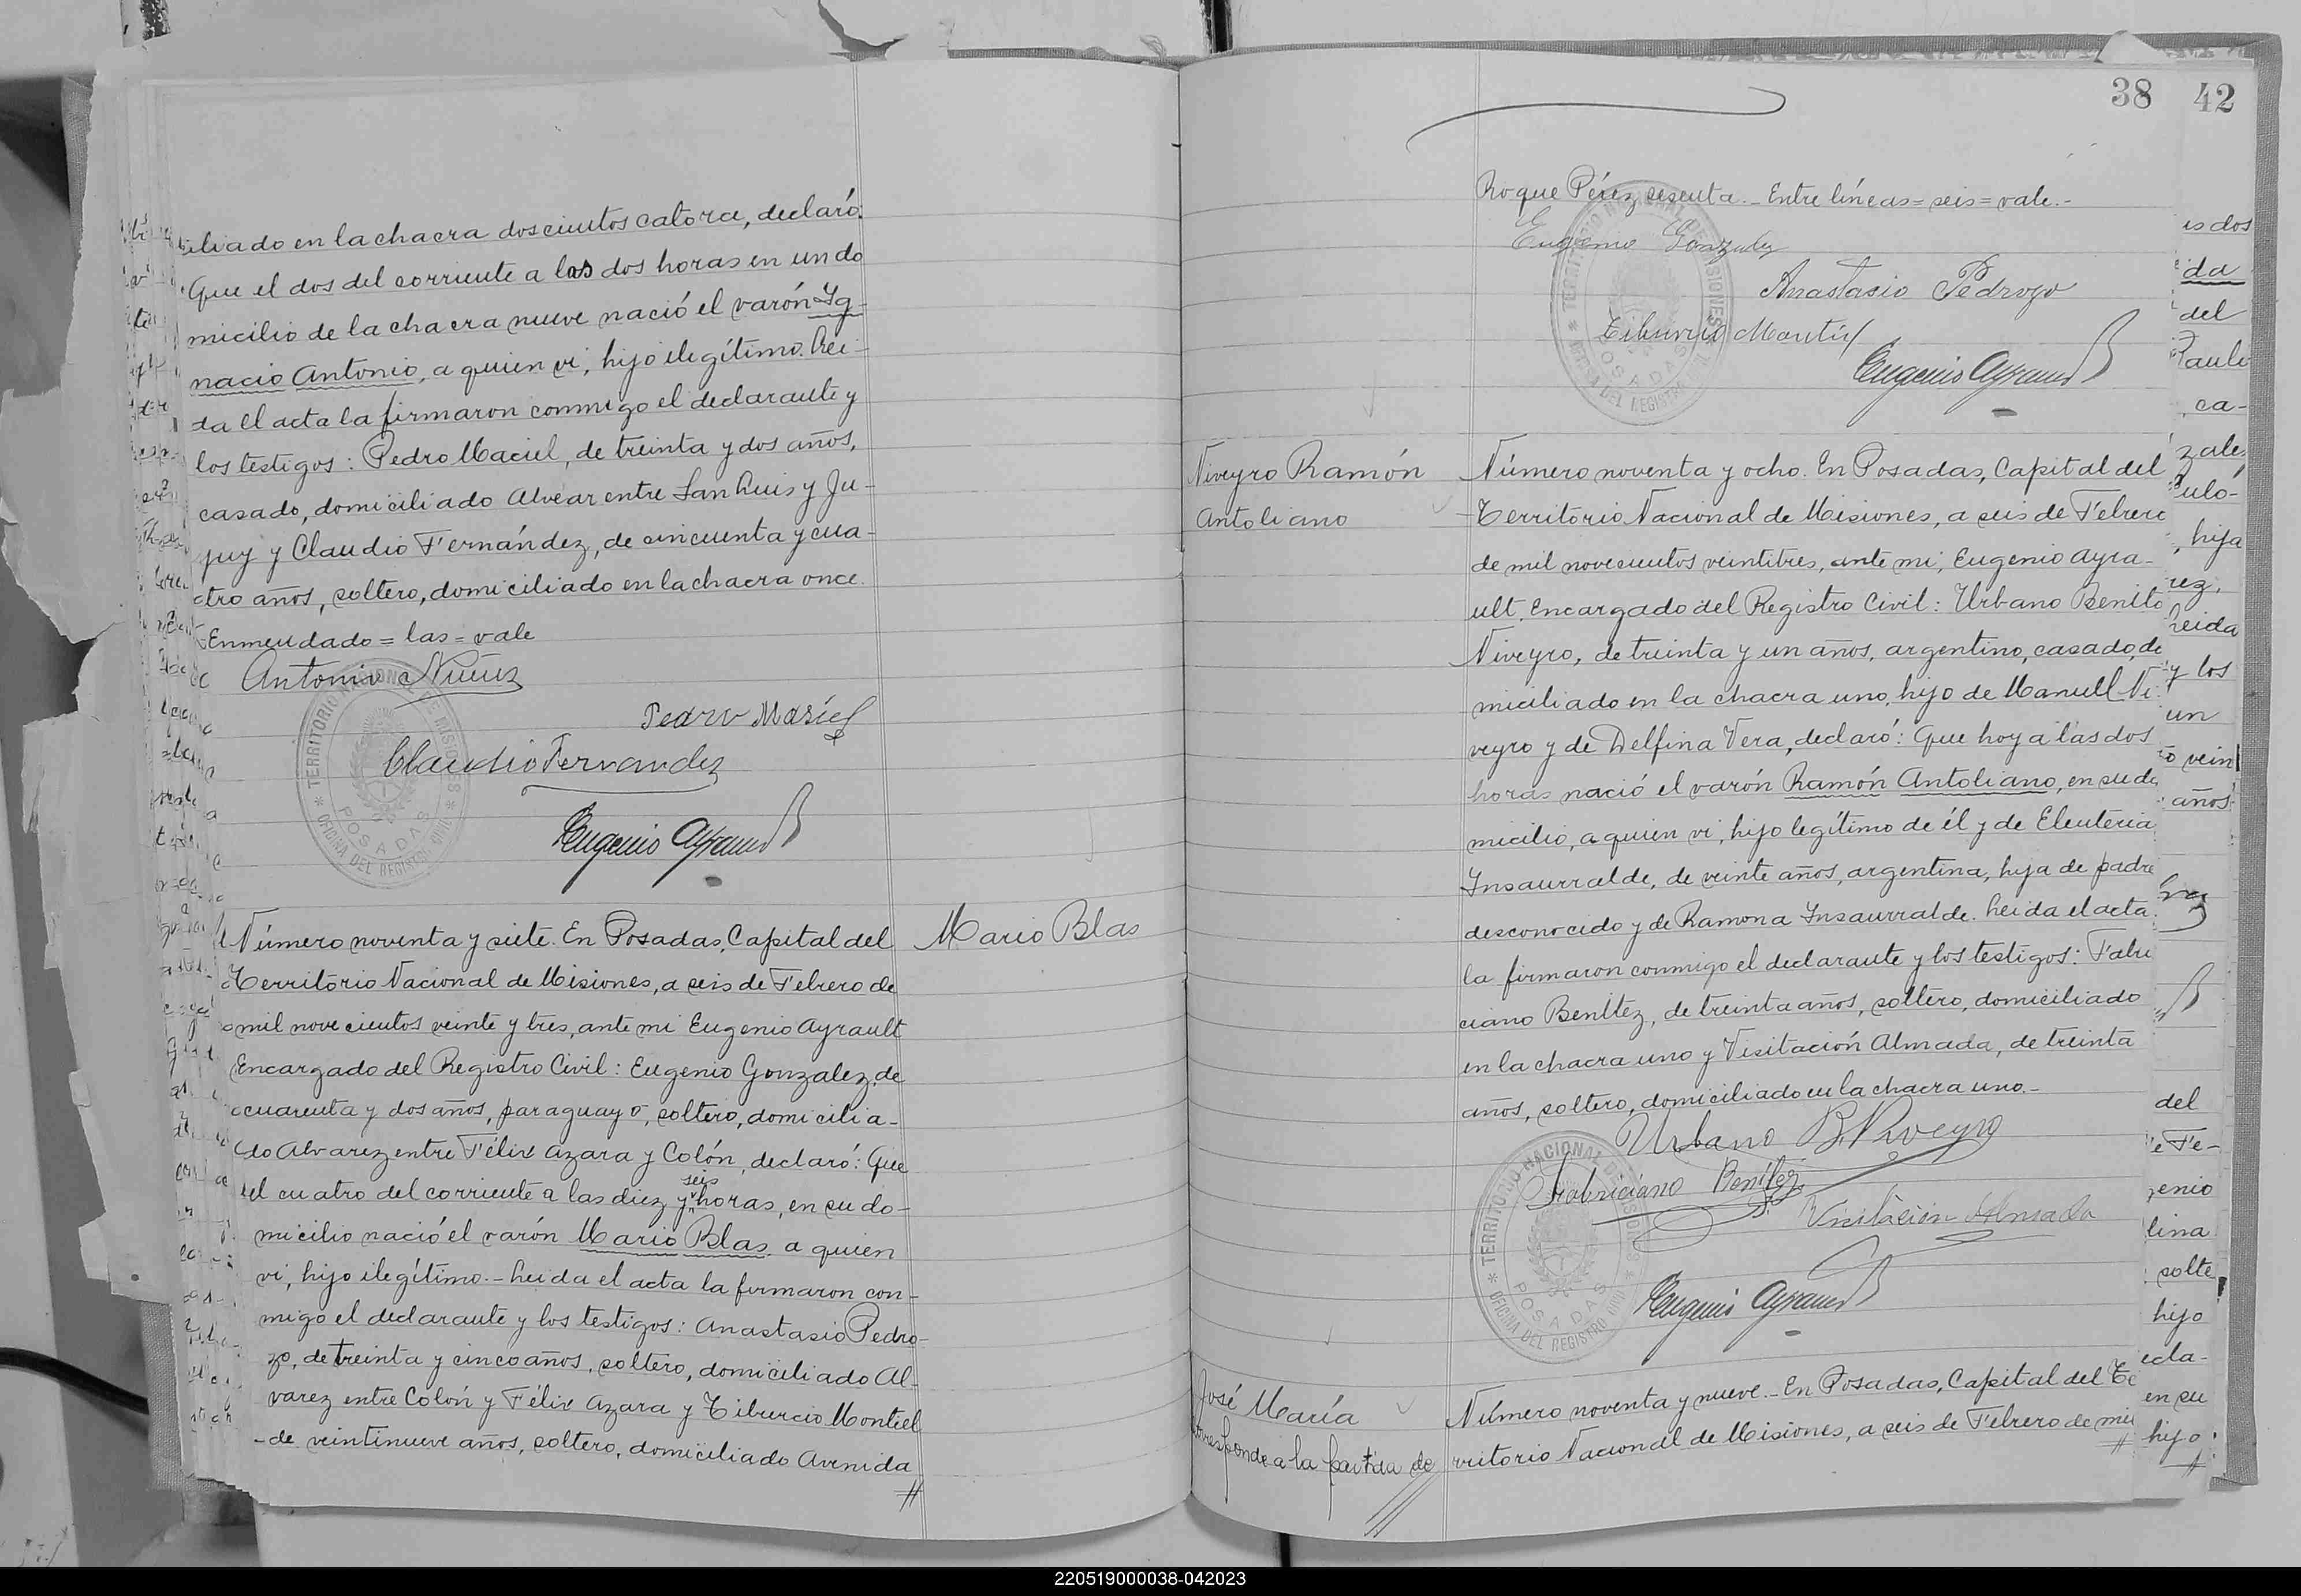 38 42
iliado en la chacra doscientos catorce, declaró:
Que el dos del corriente a las dos horas en un do
micilio de la chacra nueve nació el varón Ig-
nacio Antonio, a quien vi, hijo ilegítimo. Lei-
da el acta la firmaron conmigo el declarante y
los testigos: Pedro Maciel, de treinta y dos años,
casado, domiciliado Alvear entre San Luis y Ju-
juy y Claudio Fernández, de cincuenta y cua-
tro años, soltero, domiciliado en la chacra once.
Enmendado = las = vale
Antonio Nuñez
Pedro Masiel
Claudio Fernandez
Eugenio Ayrault
TERRITORIO NACIONAL DE MISIONES
* OFICINA DEL REGISTRO CIVIL *
POSADAS
Mario Blas
Número noventa y siete. En Posadas, Capital del
Territorio Nacional de Misiones, a seis de Febrero de
mil novecientos veinte y tres, ante mi Eugenio Ayrault
Encargado del Registro Civil: Eugenio Gonzalez, de
cuarenta y dos años, paraguayo, soltero, domicilia-
do Alvarez entre Félix Azara y Colón, declaró: Que
seis
el cuatro del corriente a las diez y horas, en su do-
micilio nació el varón Mario Blas, a quien
vi, hijo ilegítimo.- Leida el acta la firmaron con-
migo el declarante y los testigos: Anastasio Pedro-
zo, de treinta y cinco años, soltero, domiciliado Al-
varez entre Colón y Félix Azara y Tiburcio Montiel
de veintinueve años, soltero, domiciliado Avenida
//
Roque Pérez sesenta.- Entre líneas = seis = vale.-
Eugenio Gonzalez
Anastasio Pedrozo
Tiburcio Montiel
Eugenio Ayrault
TERRITORIO NACIONAL DE MISIONES
* OFICINA DEL REGISTRO CIVIL *
POSADAS
Niveyro Ramón
Antoliano
Número noventa y ocho. En Posadas, Capital del
Territorio Nacional de Misiones, a seis de Febrero
de mil novecientos veintitres, ante mi, Eugenio Ayra-
ult, Encargado del Registro Civil: Urbano Benito
Niveyro, de treinta y un años, argentino, casado, do
miciliado en la chacra uno, hijo de Manuel Ni-
veyro y de Delfina Vera, declaró: Que hoy a las dos
horas nació el varón Ramón Antoliano, en su do
micilio, a quien vi, hijo legítimo de él y de Eleuteria
Insaurralde, de veinte años, argentina, hija de padre
desconocido y de Ramona Insaurralde. Leida el acta
la firmaron conmigo el declarante y los testigos: Fabri
ciano Benítez, de treinta años, soltero, domiciliado
en la chacra uno y Visitación Almada, de treinta
años, soltero, domiciliado en la chacra uno.-
Urbano B. Niveyro
Fabriciano Benítez
Visitacion Almada
Eugenio Ayrault
TERRITORIO NACIONAL DE MISIONES
* OFICINA DEL REGISTRO CIVIL *
POSADAS
José María
Corresponde a la partida de
//
Número noventa y nueve.- En Posadas, Capital del Te
rritorio Nacional de Misiones, a seis de Febrero de mil
//
es dos
da
del
Paulo
ca-
zale
hija
rez,
leida
y los
un
vein
años
del
e Fe-
genio
lina
solte
hijo
ecla-
en su
hijo
//
220519000038-042023